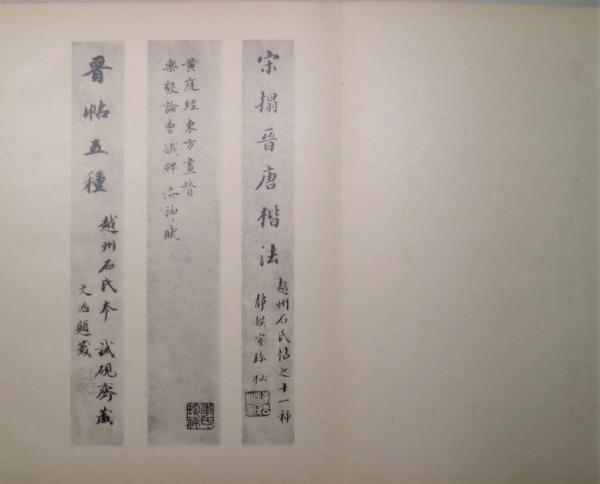 宋搨晉唐楷法
越州石氏帖之十一種
靜娛室珍祕
黃庭經東方畫贊
樂毅論曹娥碑洛神賦
晉帖五種
越州石氏本 試硯齋藏
文治題籤